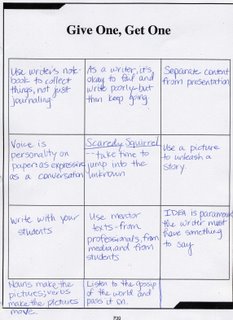 Give One, Get One
Use writer's note-
book to collect
things, not just
journaling
As a writer, it's
okay to fail and
write poorly--but
then keep going.
Separate content
from presentation
Voice is
personality on
paper as expressive
as a conversation
Scaredy Squirrel
-- take time to
jump into the
unknown
Use a picture
to unleash a
story.
Write with your
students
Use mentor
texts - from
professionals, from
media, and from
students
IDEA is paramount
the writer must
have something
to say
Nouns make the
pictures; verbs
make the pictures
move.
Listen to the gossip
of the world and
pass it on.